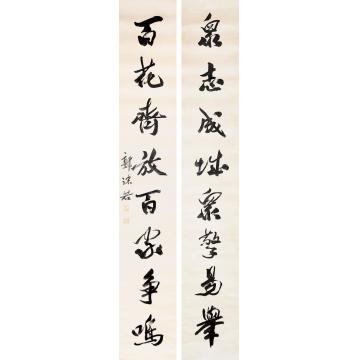 眾志成城眾擎易舉
百花齊放百家争鳴
郭沫若